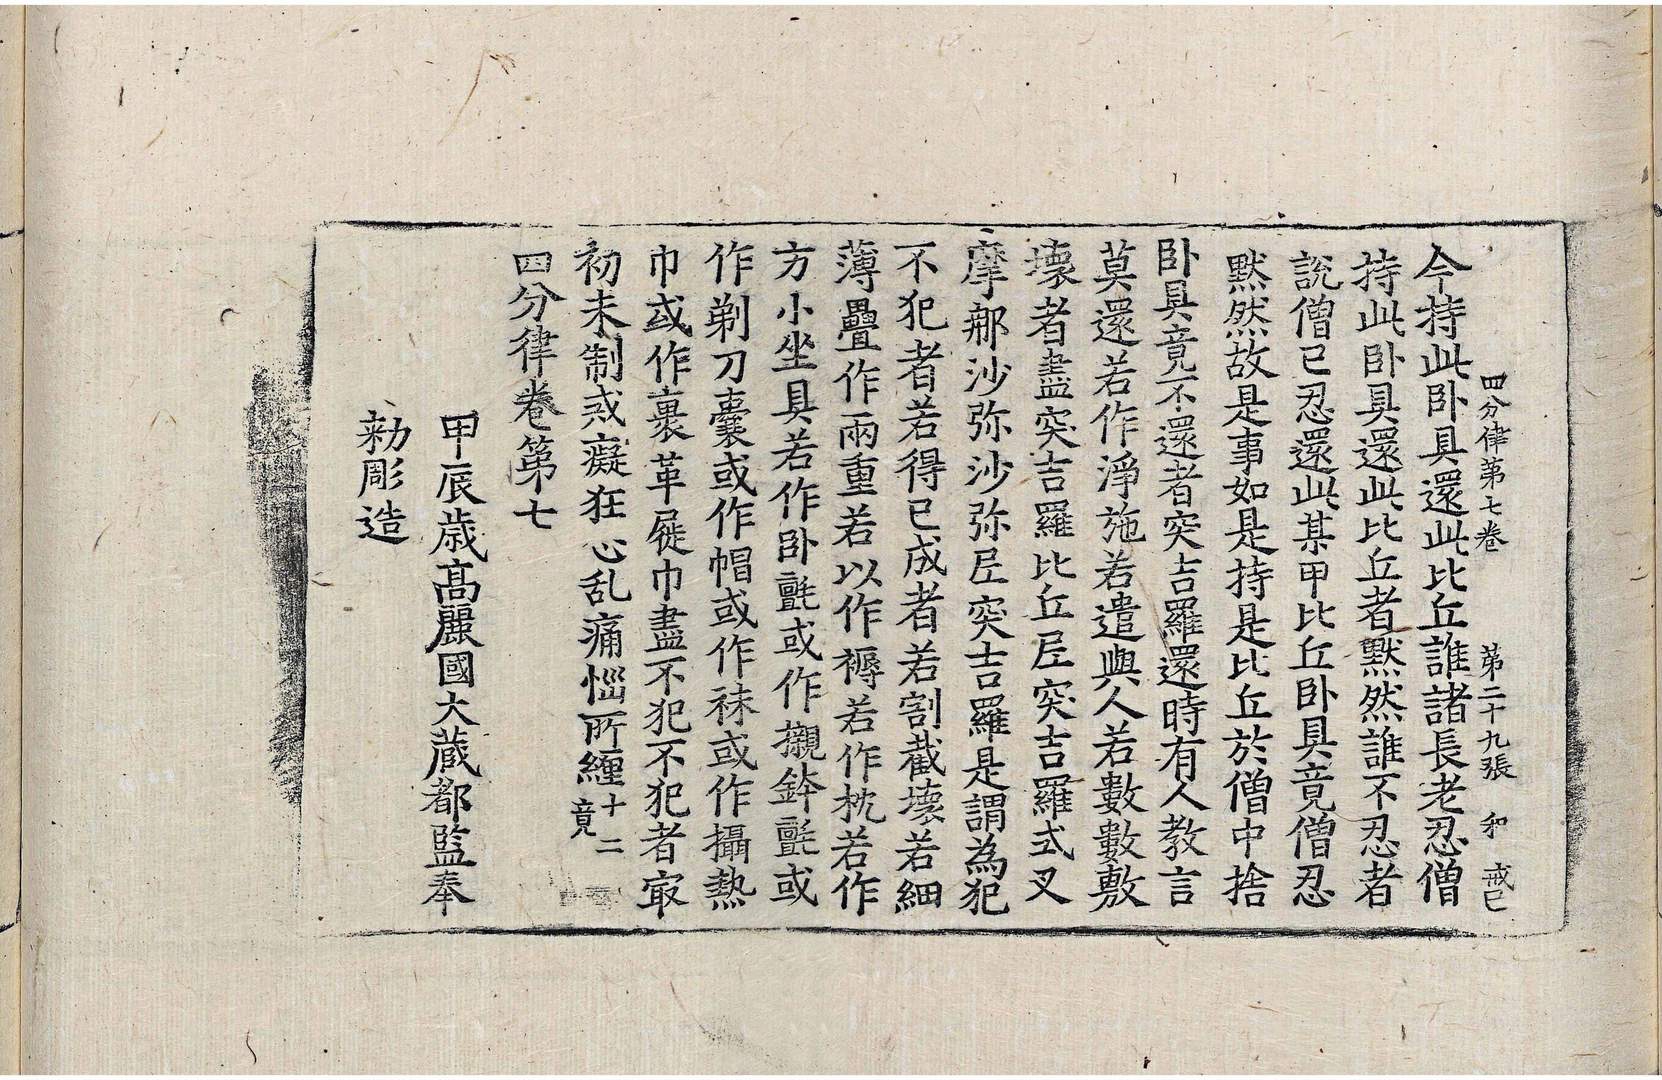 四分律第七卷 第二十九張 和 戒巳
今持此卧具還此比丘誰諸長老忍僧
持此卧具還此比丘者默然誰不忍者
說僧已忍還此某甲比丘卧具竟僧忍
默然故是事如是持是比丘於僧中捨
卧具竟不還者突吉羅還時有人教言
莫還若作淨施若遣與人若數數敷
壞者盡突吉羅比丘尼突吉羅式叉
摩那沙弥沙弥尼突吉羅是謂為犯
不犯者若得已成者若割截壞若細
薄疊作兩重若以作褥若作枕若作
方小坐具若作卧氈或作襯鉢氈或
作剃刀囊或作帽或作袜或作攝熱
巾或作裹革屣巾盡不犯不犯者㝡
初未制戒癡狂心乱痛惱所纏十二竟
四分律卷第七
甲辰歲高麗國大藏都監奉
勑彫造